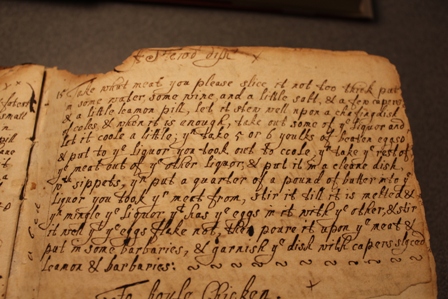 A Frewd dish
Take what meat you please slice it not too thick put
in some water some wine and a little salt, & a few capers
& a little leamon pill, let it stew well upon a chafing dish
of coles, & when it is enough, take out some of ye liquor and
let it coole a little; yn take 5 or 6 youlks of beaten eggs
& put to ye liquor you took out to coole, yn take ye rest of
meat out of ye other liquor, & put it in a cleane dish
wth sippets, yn put a quarter of a pound of butter into ye
liquor you took ye meat from, stir it till it is melted &
yn mingle ye liquor, yt has ye eggs in it with ye other, & stir
it well yt ye eggs take not, then poure it upon ye meat &
put in some barbaries, & garnish ye dish with capers sliced
leamon & barbaries:
To boyle Chicken.